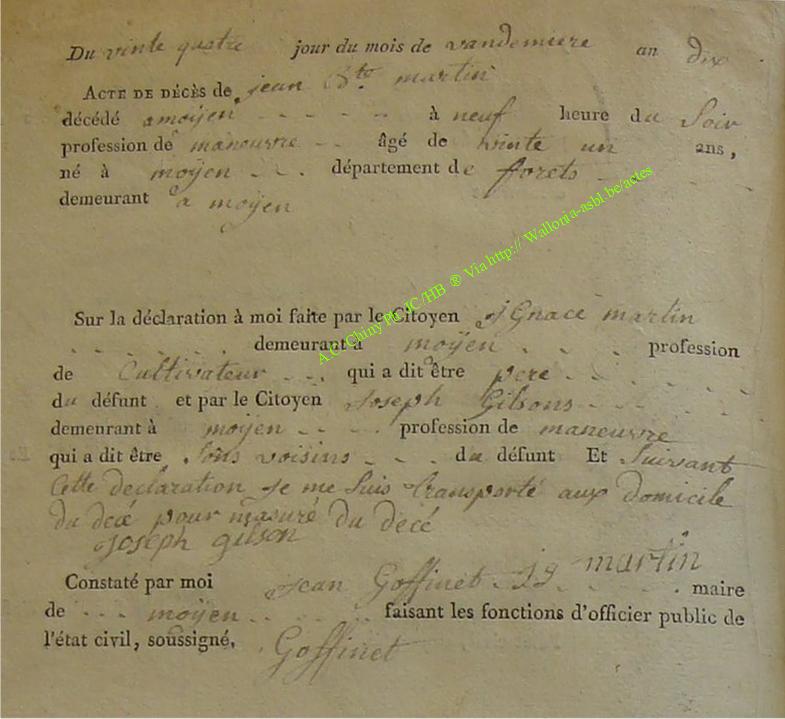 Du vinte quatre jour du mois de vandemiere an dix
ACTE DE DÉCÈS de jean Bte martin
décédé amoÿen - - - - - à neuf heure du Soir
profession de maneuvre - - âgé de vinte un ans,
né à moÿen - - . département de forets - - -
demeurant a moÿen
A.C. Chiny PL JC/HB ® Via http:// Wallonia-asbl.be/actes
Sur la déclaration à moi faite par le Citoyen jGnace martin
- - - - - - demeurant à moÿen - - - profession
de Cultivateur - - . qui a dit être pere - - - - -
du défunt et par le Citoyen Joseph Gilsons - - - -
demeurant à moÿen - - - - profession de maneuvre
qui a dit être sons voisins - - - du défunt Et Suivant
Cette declaration je me Suis transporté aux domicile
du decé pour masuré du decé
joseph gilson
jg martin
Constaté par moi Jean Goffinet - - - - - - maire
de - - - moÿen - - - - - faisant les fonctions d'officier public de
l'état civil, soussigné. Goffinet